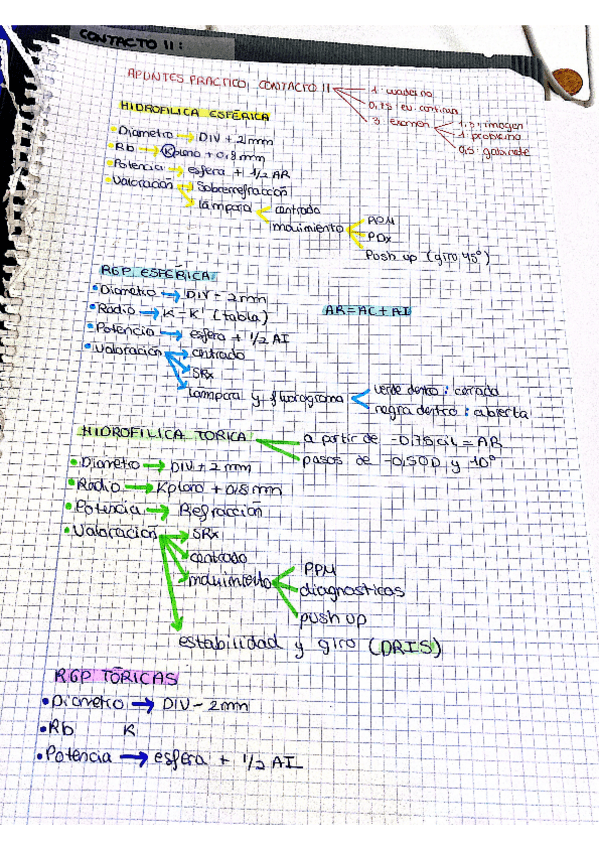 CONTACTO II:
APUNTES PRACTICO, CONTACTO II
1. cuaderno
0,75 ev. continua
3. examen
1,5. imagen
1. problema
0,5. gabinete
HIDROFILICA ESFÉRICA
Diametro → DIV + 2mm
Rb → Kplano + 0,8mm
Potencia → esfera + 1/2 AR
Valoración → Sobrerrefracción
lámpara
centrado
movimiento
PPM
PDx
Push up (giro 45°)
RGP ESFÉRICA
Diametro → DIV - 2mm
AR = AC + AI
Radio → K - K' (tabla)
Potencia → esfera + 1/2 AI
Valoración → centrado
SRx
lampara y fluorograma
verde dentro: cerrada
negra dentro: abierta
HIDROFILICA TORICA
a partir de -0,75 cil = AR
pasos de -0,50D y 10°
Diametro → DIV + 2mm
Radio → Kplano + 0,8mm
Potencia → Refraccion
Valoración → SRx
centrado
movimiento
PPM
diagnosticos
push up
estabilidad y giro (DRIS)
RGP TÓRICAS
Diametro → DIV - 2mm
Rb K
Potencia → esfera + 1/2 AI